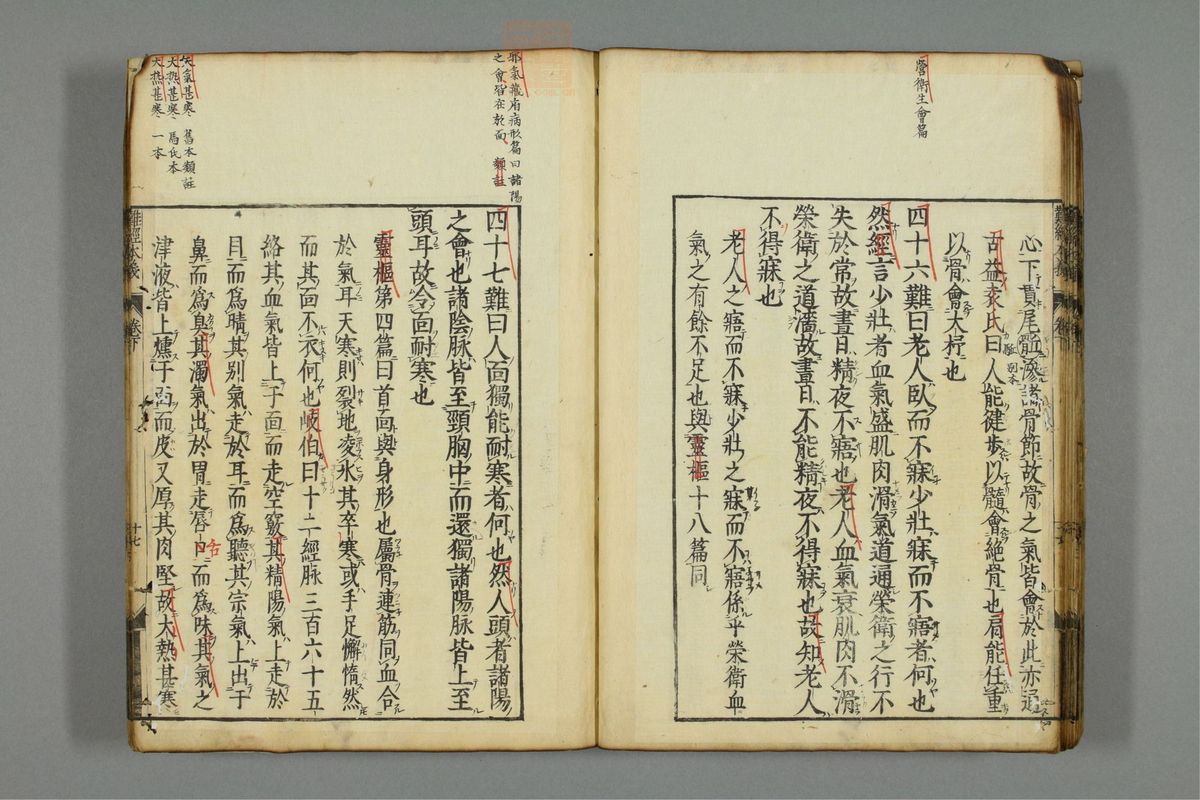 營衛生會篇
心下貫尾骶滲諸骨節故骨之氣皆會於此亦通
古益袁氏曰人能健步以髓會絕骨也肩能任重
以骨會大杼也
四十六難曰老人臥而不寐少壯寐而不寤者何也
然經言少壯者血氣盛肌肉滑氣道通榮衛之行不
失於常故晝日精夜不寤也老人血氣衰肌肉不滑
榮衛之道濇故晝日不能精夜不得寐也故知老人
不得寐也
老人之寤而不寐少壯之寐而不寤係乎榮衛血
氣之有餘不足也與靈樞十八篇同
邪氣藏府病形篇曰諸陽
之會皆在於面 類註
四十七難曰人面獨能耐寒者何也然人頭者諸陽
之會也諸陰脉皆至頸胸中而還獨諸陽脉皆上至
頭耳故令面耐寒也
靈樞第四篇曰首面與身形也屬骨連筋同血合
於氣耳天寒則裂地凌氷其卒寒或手足懈惰然
而其面不衣何也岐伯曰十二經脉三百六十五
絡其血氣皆上于面而走空竅其精陽氣上走於
目而爲睛其别氣走於耳而爲聽其宗氣上出于
鼻而爲臭其濁氣出於胃走唇口而爲味其氣之
津液皆上燻于面而皮又厚其肉堅故大熱甚寒
舌
天氣甚寒 舊本類註
大熱甚寒 馬氏本
天熱甚寒 一本
難經本義
卷下
十七